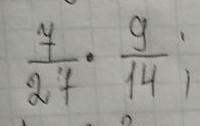 7/27 · 9/14;